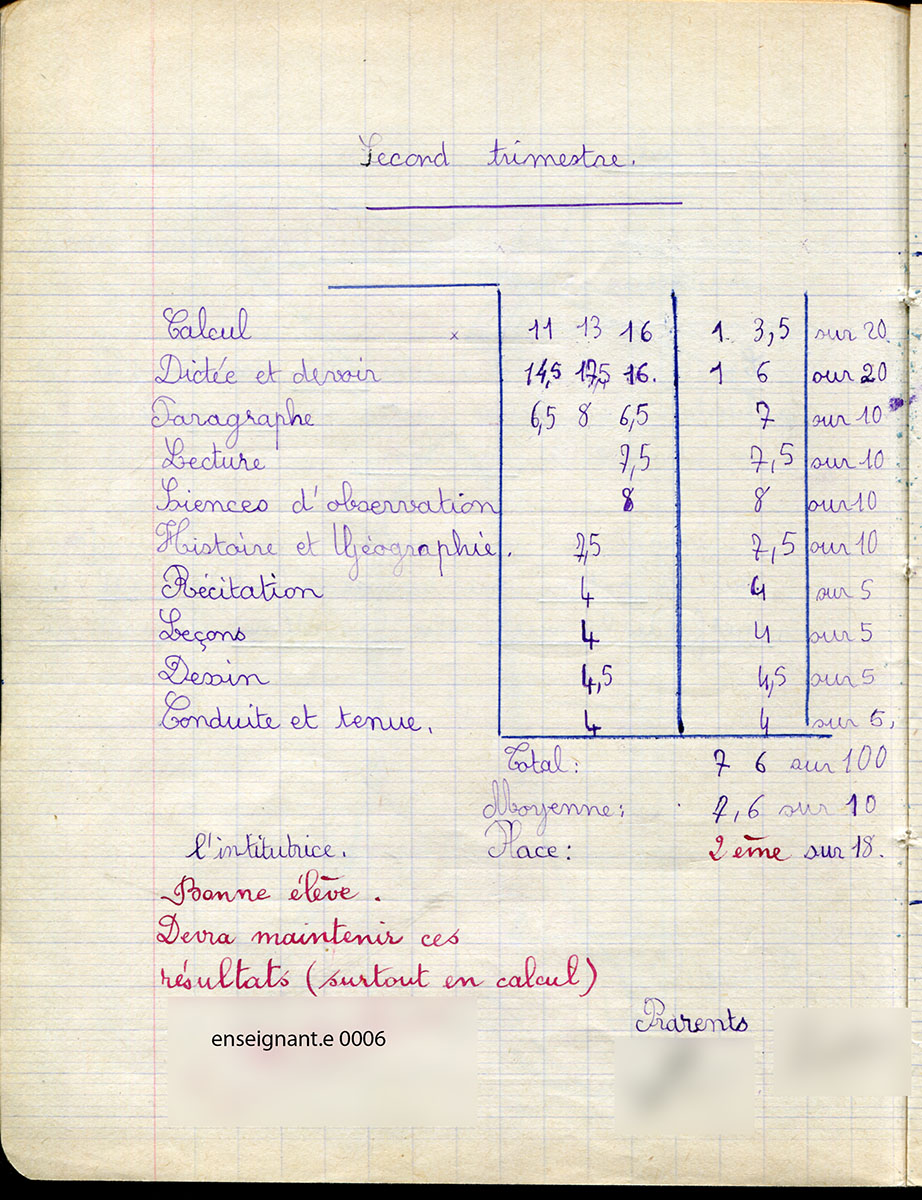 Second trimestre.
Calcul 11 13 16 1 3,5 sur 20
Dictée et devoir 14,5 17,5 16. 1 6 sur 20
Paragraphe 6,5 8 6,5 7 sur 10
Lecture 7,5 7,5 sur 10
Sciences d'observation 8 8 sur 10
Histoire et Géographie. 7,5 7,5 sur 10
Récitation 4 4 sur 5
Leçons 4 4 sur 5
Dessin 4,5 4,5 sur 5
Conduite et tenue. 4 4 sur 5.
Total: 7 6 sur 100
Moyenne: 7,6 sur 10
l'intitutrice. Place: 2ème sur 18.
Bonne élève.
Devra maintenir ces
résultats (surtout en calcul)
Parents
enseignant.e 0006